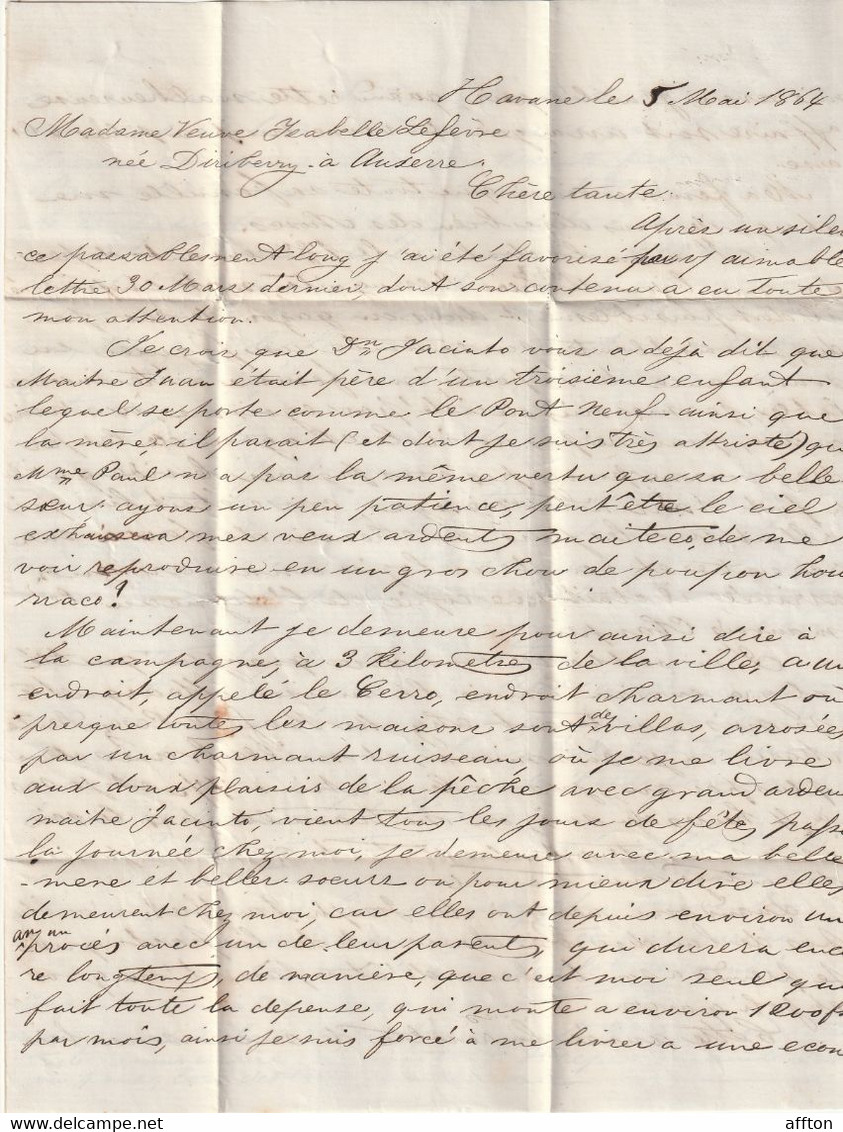 Havane le 5 Mai 1864
Madame Veuve Isabelle Lefèvre
née Diriberry à Auxerre.
Chère tante.
Après un silen
-ce passablement long j'ai été favorisé par v/ aimable
lettre 30 Mars dernier, dont son contenu a eu toute
mon attention.
Je crois que Dn Jacinto vous a déjà dit que
Maitre Juan était père d'un troisième enfant
lequel se porte comme le Pont neuf ainsi que
la mère, il parait (et dont je suis très attristé) qu
Mme Paul n'a pas la même vertu que sa belle
sœur ayons un peu patience, peut être le ciel
exhaussera mes veux ardents de me
voir reproduire en un gros chou de poupon hou
rraco!
Maintenant je demeure pour ainsi dire à
la campagne, à 3 Kilomètres de la ville, a un
endroit, appelé le Cerro, endroit charmant où
presque toutes les maisons sont des villas, arrosées
par un charmant ruisseau, où je me livre
aux doux plaisirs de la pêche avec grand ardeu
maitre Jacinto, vient tous les jours de fêtes passe
la journée chez moi, je demeure avec ma belle
-mere et belles sœurs ou pour mieux dire elles
demeurent chez moi, car elles ont depuis environ un
an un procés avec un de leur parents, qui durera enco
re longtemps, de manière, que c'est moi seul qui
fait toute la depense, qui monte a environ 1200 f
par mois, ainsi je suis forcé à me livrer a une econ
affton
www.delcampe.net